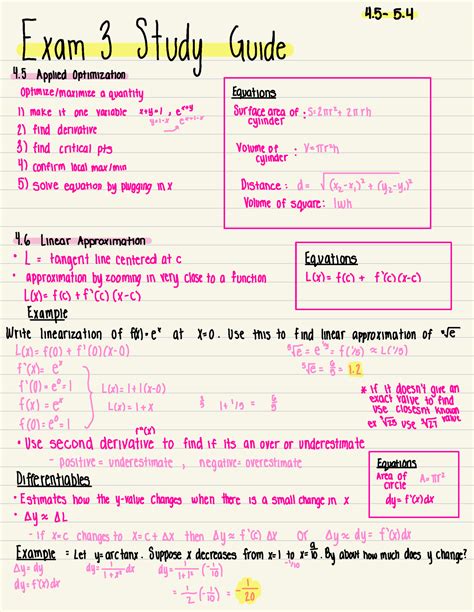 4.5-5.4
Exam 3 Study Guide
4.5 Applied Optimization
Optimize/maximize a quantity
1) make it one variable x+y=1 , e^x+y
y=1-x e^x+1-x
2) find derivative
3) find critical pts
4) confirm local max/min
5) solve equation by plugging in x
Equations
Surface area of cylinder : S=2πr²+2πrh
Volume of cylinder : V=πr²h
Distance : d= √(x₂-x₁)²+(y₂-y₁)²
Volume of square: lwh
4.6 Linear Approximation
• L = tangent line centered at c
• approximation by zooming in very close to a function
L(x)= f(c) + f'(c)(x-c)
Equations
L(x)= f(c) + f'(c)(x-c)
Example
Write linearization of f(x)=e^x at x=0. Use this to find linear approximation of ⁵√e
L(x)= f(0) + f'(0)(x-0)
f'(x)= e^x
f'(0)=e⁰=1
f(x)=e^x
f(0)=e⁰=1
L(x)=1+1(x-0)
L(x)=1+x
⁵√e = e^1/5 = f(1/5) ≈ L(1/5)
⁵√e = 6/5 = 1.2
1+1/5 = 6/5
* if it doesn't give an
exact value to find
use closesnt known
ex ³√25 use ³√27
f"(x)
• Use second derivative to find if its an over or underestimate
- positive = underestimate , negative=overestimate
Equations
Area of circle A=πr²
dy= f'(x)dx
Differentiables
• Estimates how the y-value changes when there is a small change in x
• Δy ≈ ΔL
- If x=c changes to x=c+Δx then Δy≈f'(c) Δx or Δy≈dy=f'(x)dx
Example = Let y=arctanx. Suppose x decreases from x=1 to x=9/10. By about how much does y change?
Δy=dy
dy=f'(x)dx
dy= 1/1+x² dx
dy= 1/1+1² (-1/10)
= 1/2 (-1/10) = -1/20